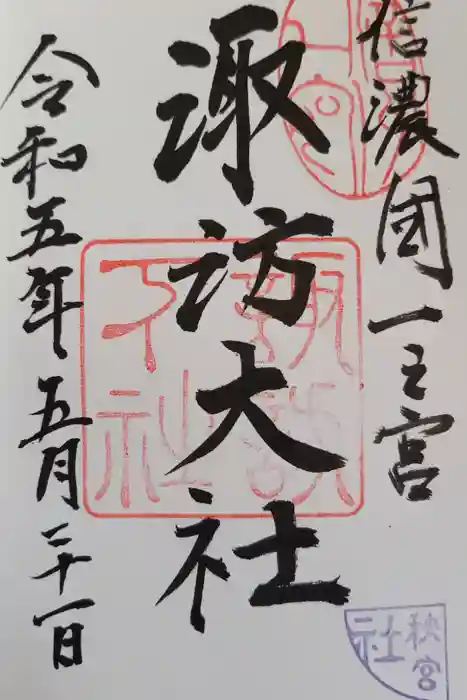 信濃国一之宮
諏訪大社
令和五年五月二十一日
諏訪
下社
秋宮
社